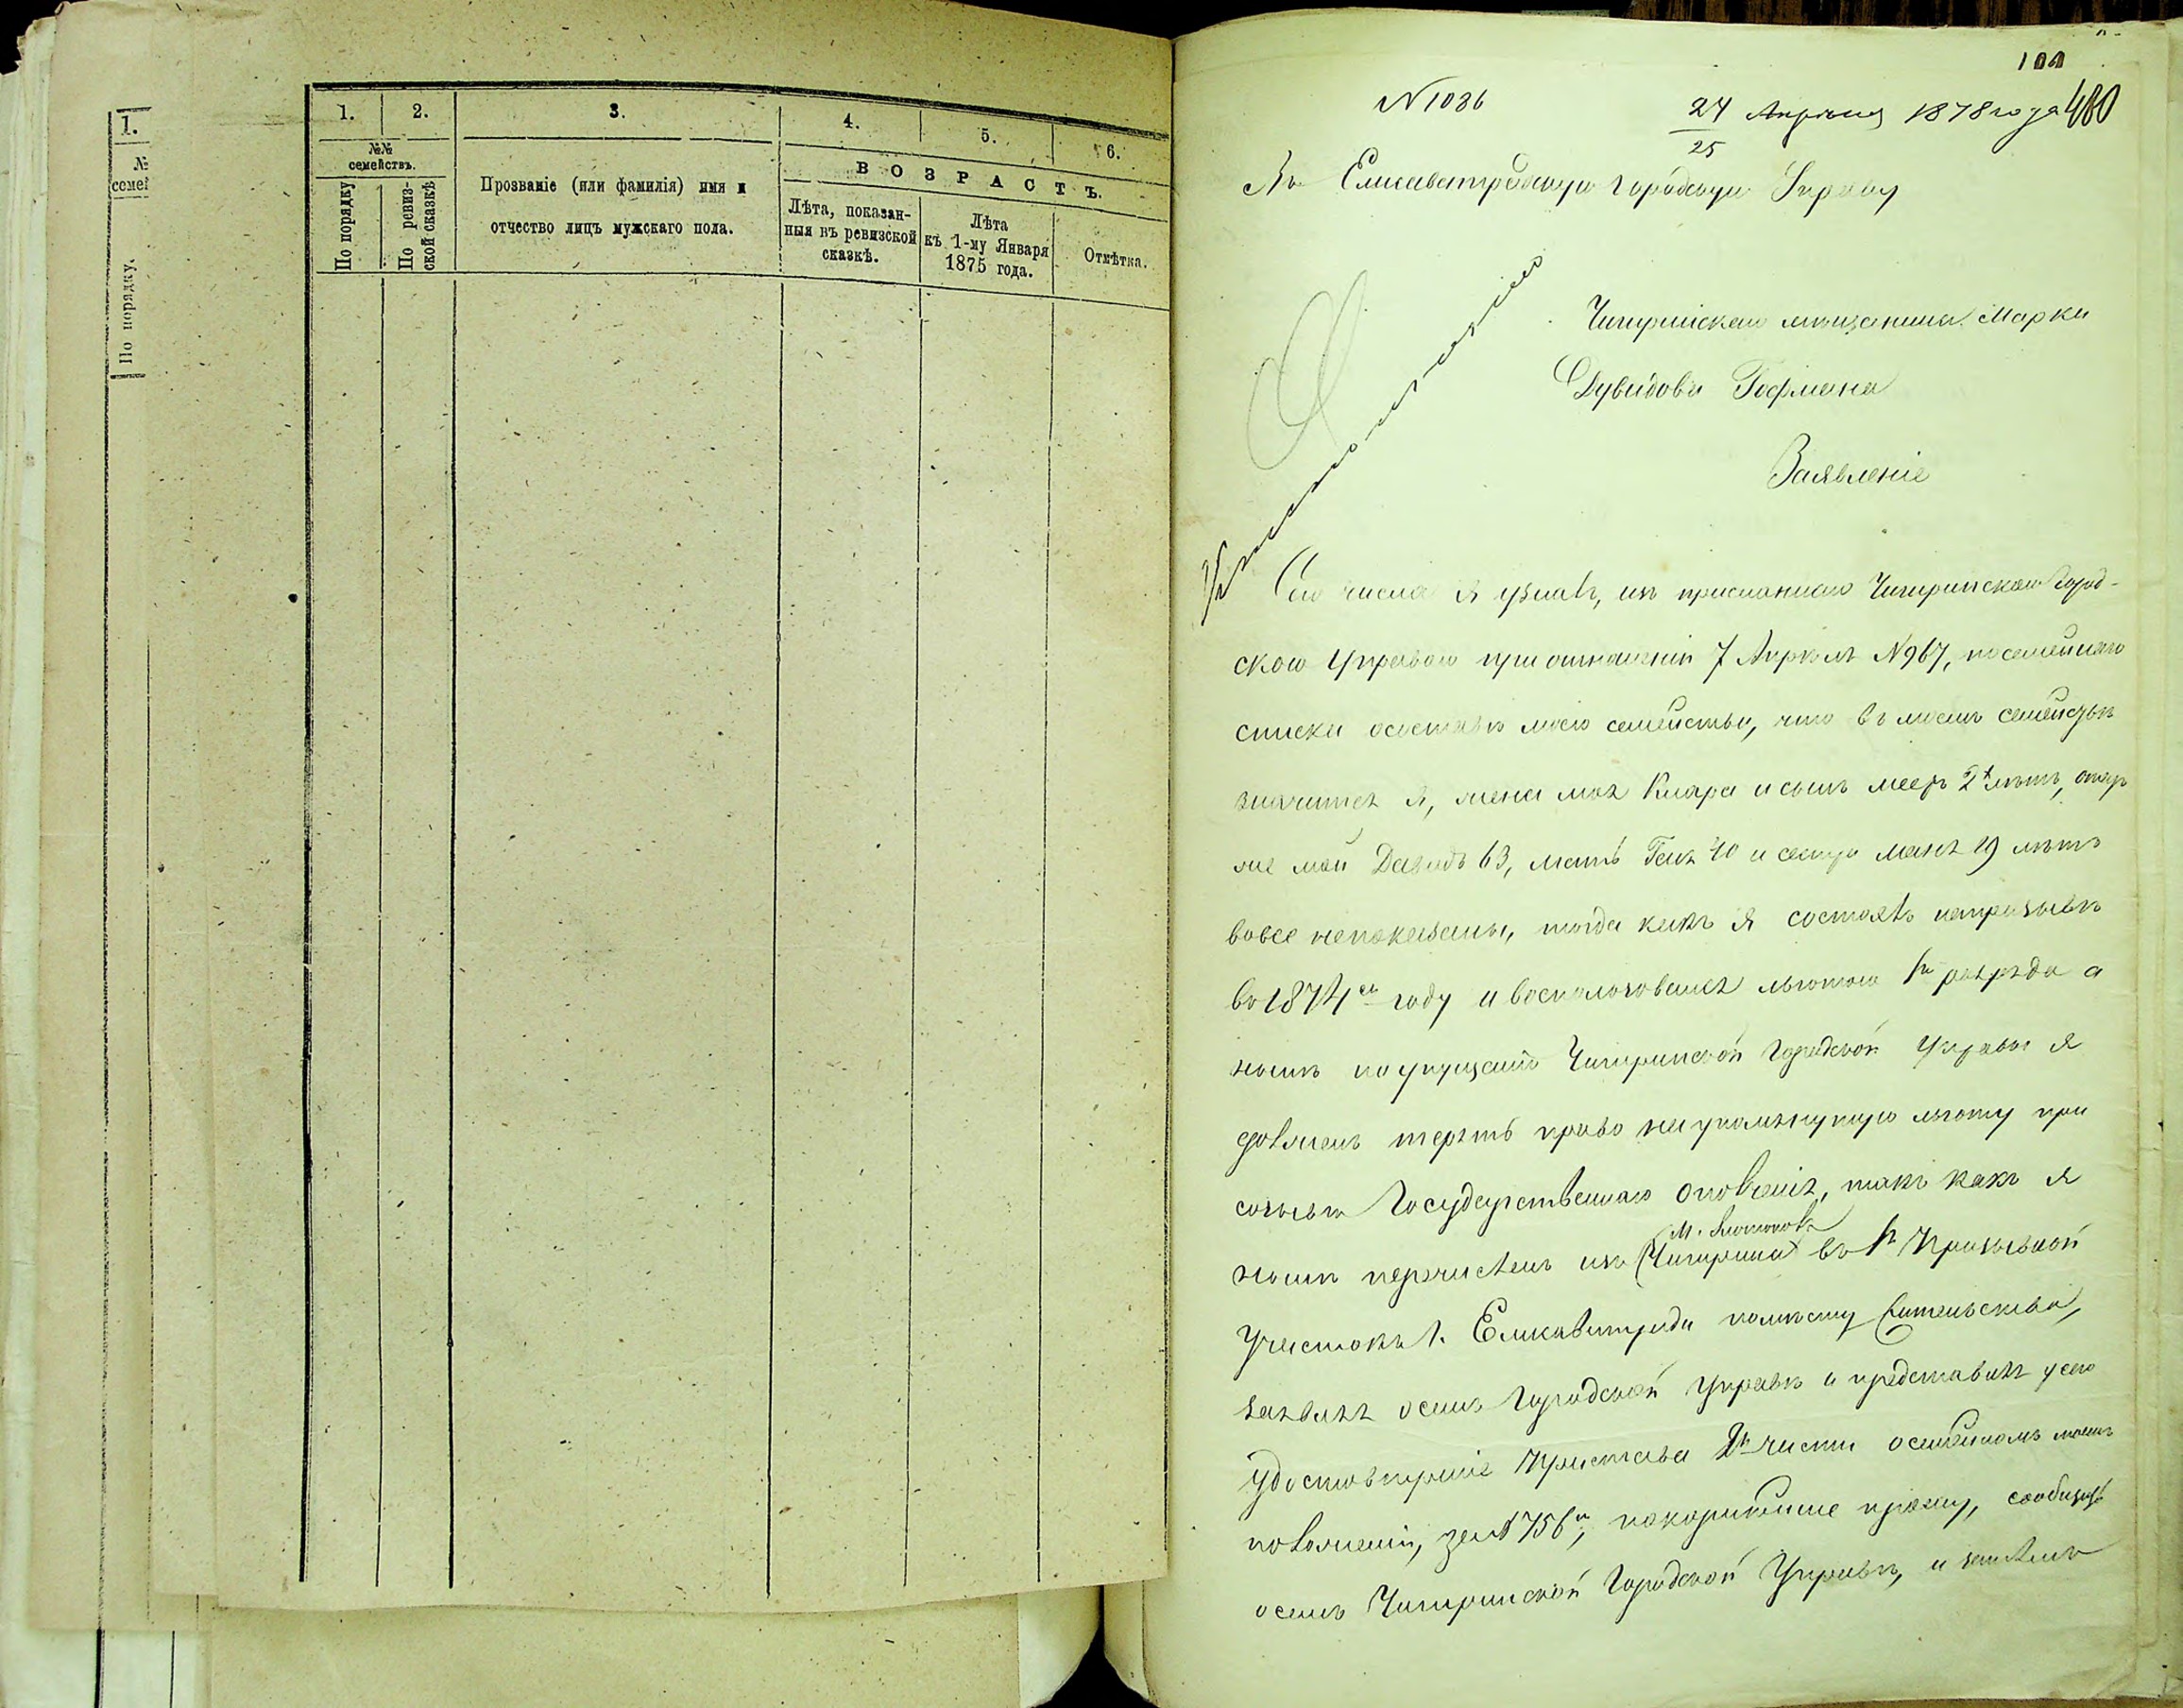 1.
№
семей
По порядку.
1.
2.
3.
4.
5.
6.
№№
семействъ.
По порядку
По ревиз-
ской сказкѣ
Прозваніе (или фамилія) имя и
отчество лицъ мужскаго пола.
ВОЗРАСТЪ.
Лѣта, показан-
ныя въ ревизской
сказкѣ.
Лѣта
къ 1-му Января
1875 года.
Отмѣтка.
480
N 1036
24 Апрѣля 1878 года
25
Въ Елисаветградскую городскую Управу
Чигиринскаго мѣщанина Марка
Дувидова Гофмана
Заявленіе
Сего числа я узналъ, изъ присланнаго Чигиринскою Город-
скою Управою при отношеніи 7 Апрѣля N 967, посемейнаго
списка о составѣ моего семейства, что въ моемъ семействѣ
значится я, жена моя Клара и сынъ Мееръ 2 лѣтъ, отецъ
же мой Давидъ 63, мать Гена 40 и сестра 19 лѣтъ
вовсе непоказаны, тогда какъ я состоялъ на призывѣ
въ 1874 году и воспользовался льготою 1го разряда а
нынѣ по упущенію Чигиринской Городской Управы я
долженъ терять право на упомянутую льготу при
созывѣ Государственнаго ополченія, такъ какъ я
нынѣ перечисленъ изъ Чигирина въ 1й Призывной
Участокъ г. Елисаветграда по мѣсту жительства,
заявляя о семъ Городской Управѣ и представляя у сего
удостовѣреніе Пристава 2й части о семейномъ моемъ
положеніи, за N 756, покорнѣйше прошу, сообщить
о семъ Чигиринской Городской Управѣ, и затѣмъ